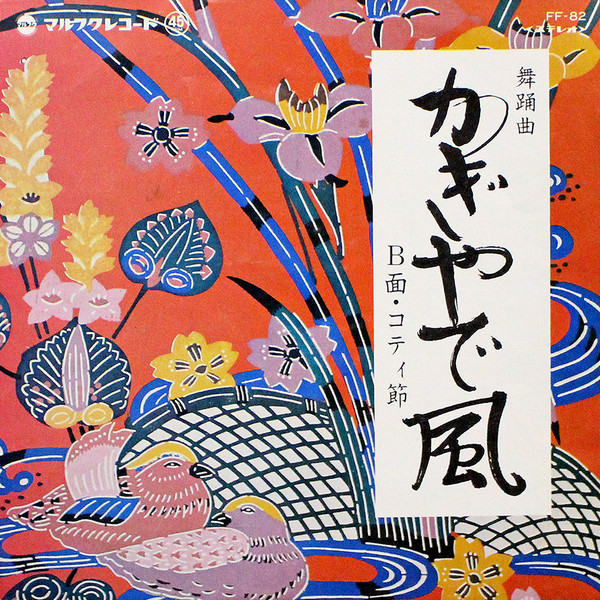 マルフク マルフクレコード 45
FF-82
<ステレオ>
舞踊曲
かぎやで風
B面・コティ節